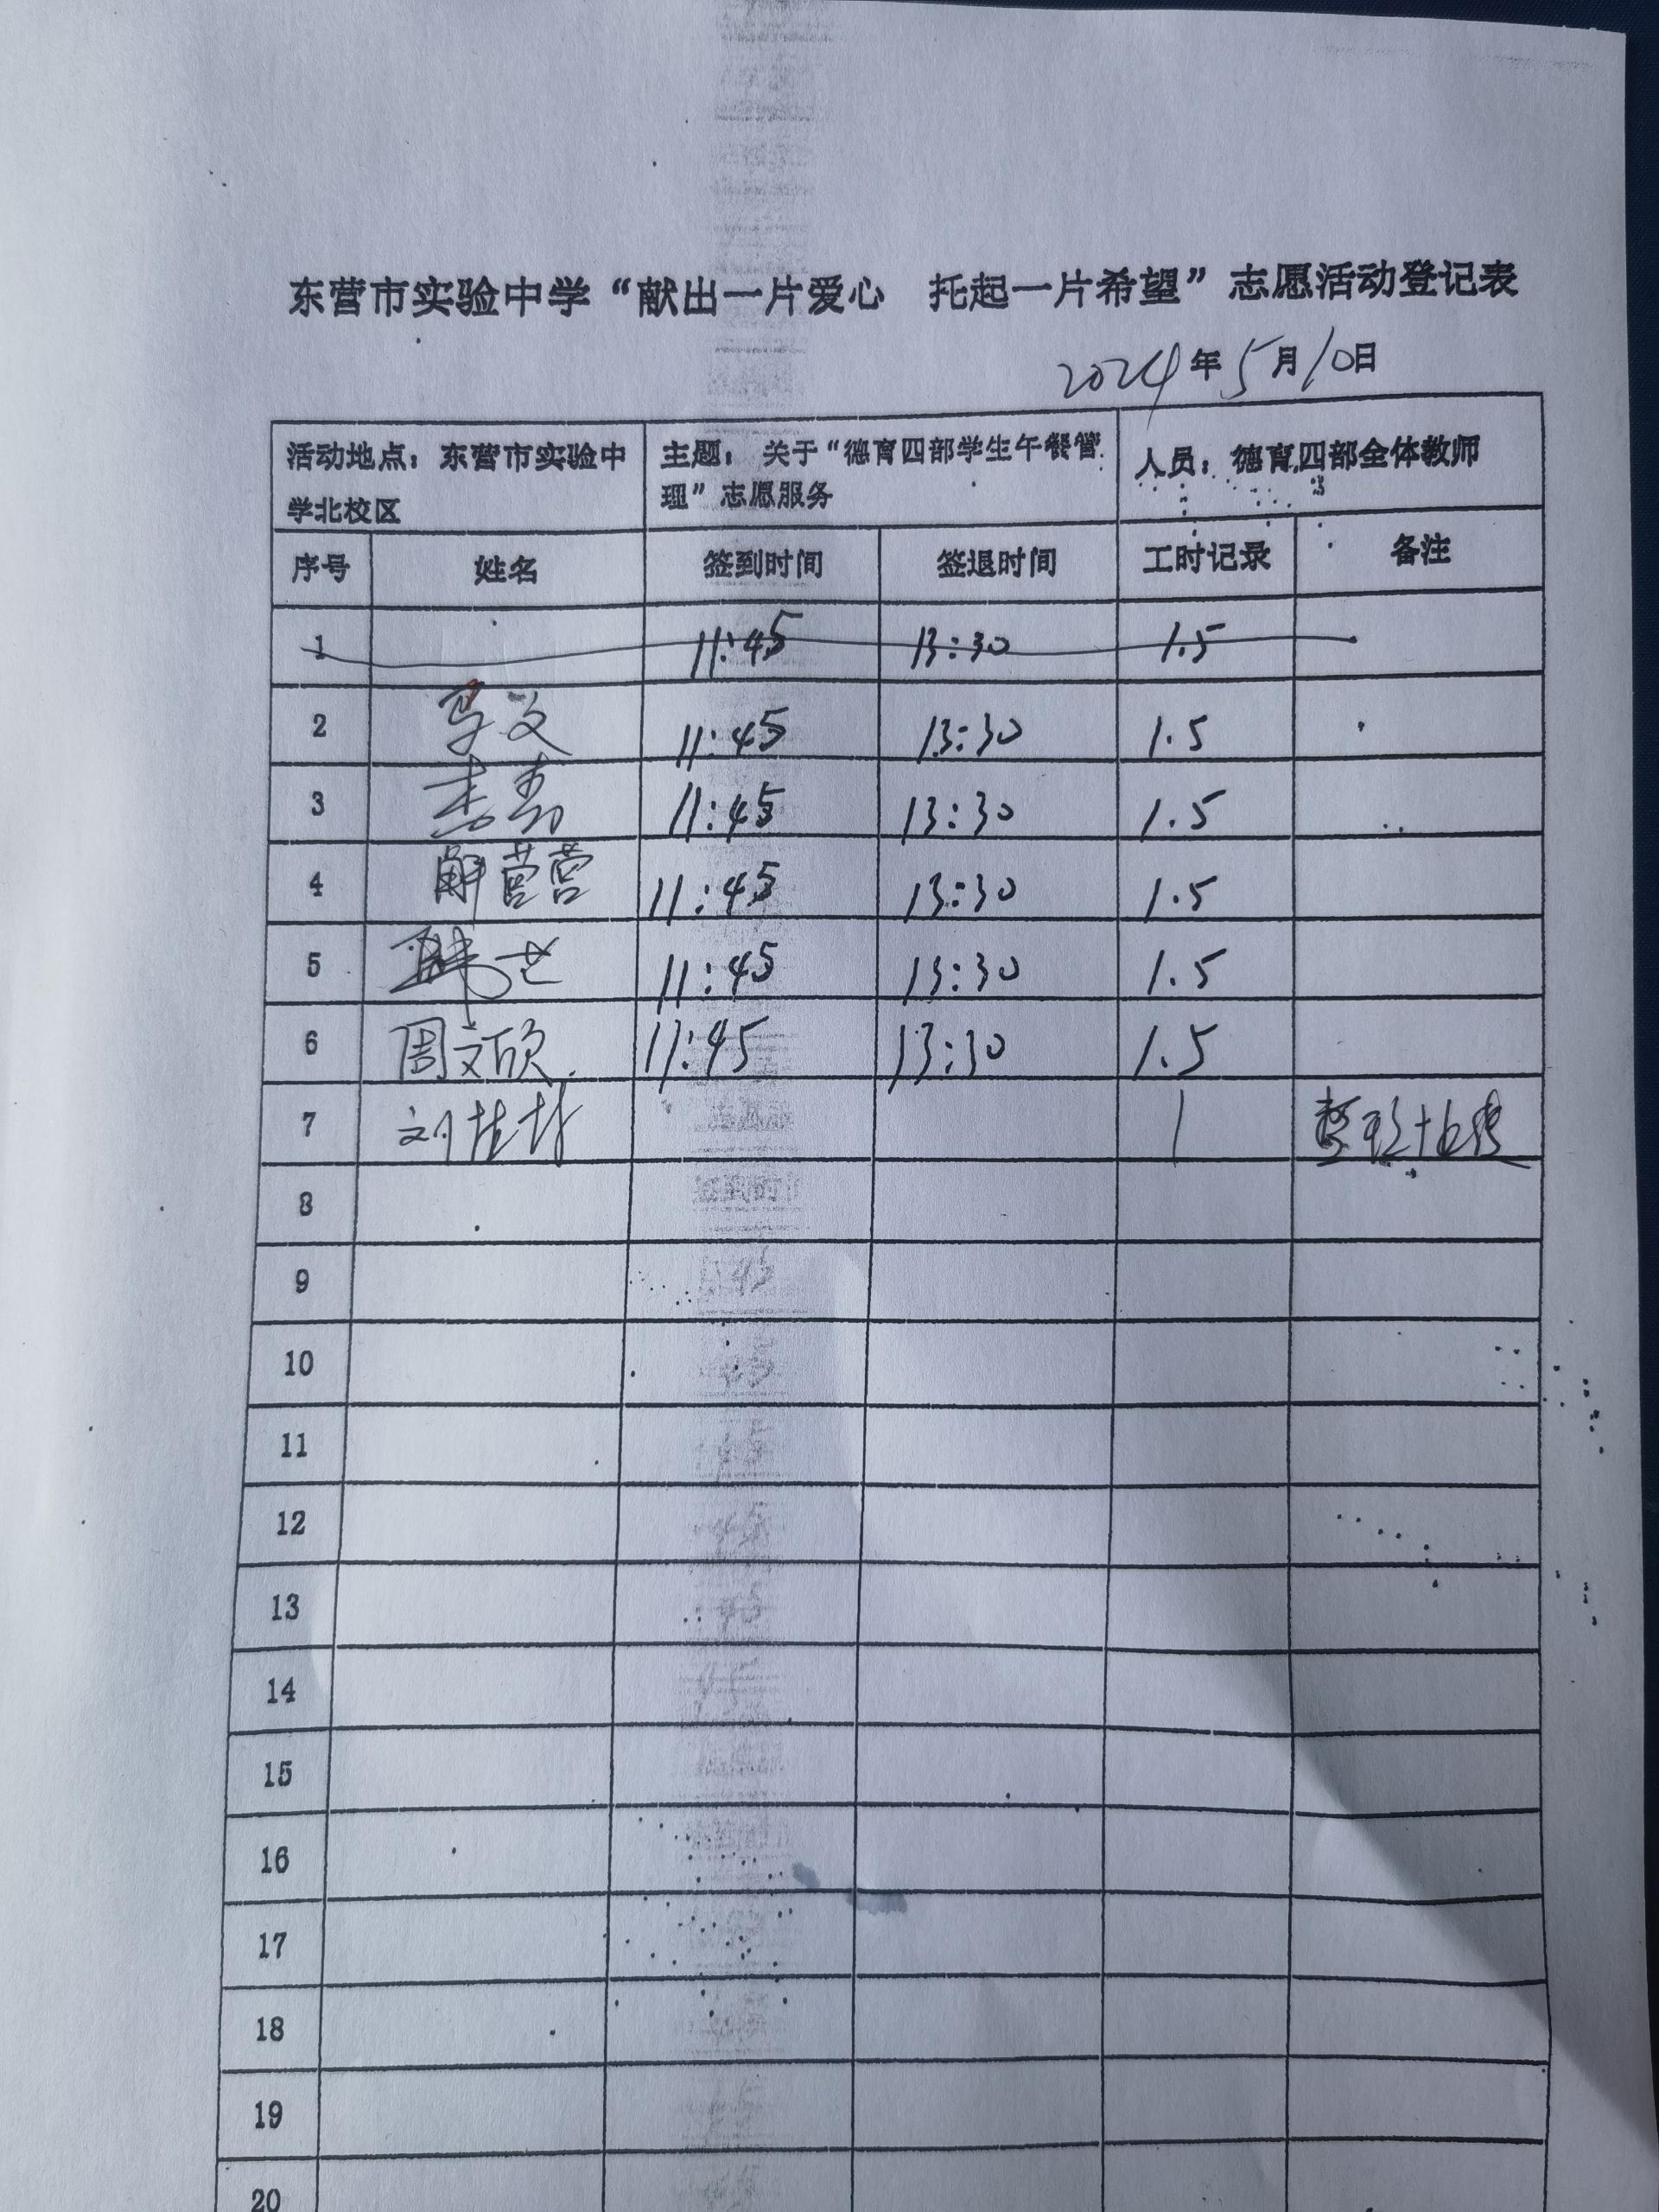 东营市实验中学“献出一片爱心 托起一片希望”志愿活动登记表
2024年5月10日
活动地点：东营市实验中学北校区 主题：关于“德育四部学生午餐管理”志愿服务 人员：德育四部全体教师
序号 姓名 签到时间 签退时间 工时记录 备注
1 11:45 13:30 1.5
2 马文 11:45 13:30 1.5
3 11:45 13:30 1.5
4 解营营 11:45 13:30 1.5
5 11:45 13:30 1.5
6 周文欣 11:45 13:30 1.5
7 刘 1 整理
8
9
10
11
12
13
14
15
16
17
18
19
20